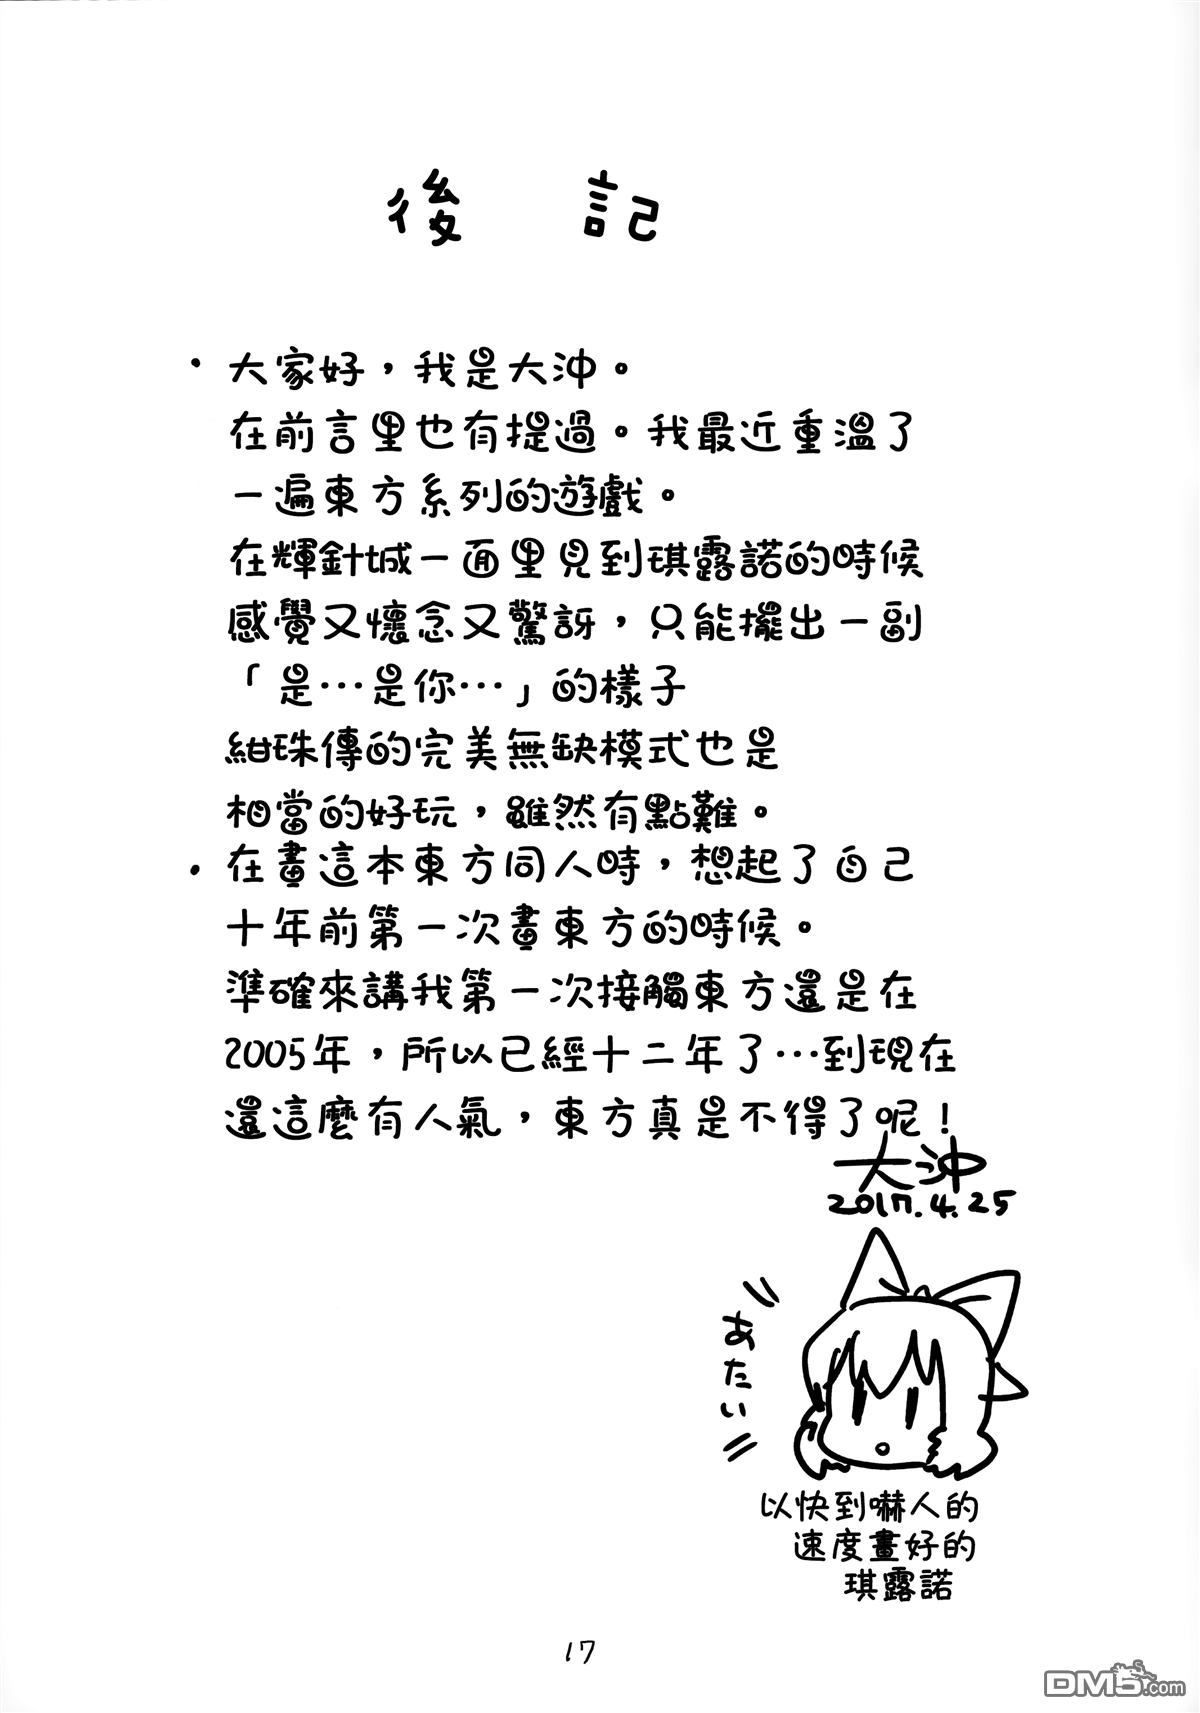 後記
・大家好，我是大沖。
在前言里也有提過。我最近重溫了
一遍東方系列的遊戲。
在輝針城一面里見到琪露諾的時候
感覺又懷念又驚訝，只能擺出一副
「是…是你…」的樣子
紺珠傳的完美無缺模式也是
相當的好玩，雖然有點難。
・在畫這本東方同人時，想起了自己
十年前第一次畫東方的時候。
準確來講我第一次接觸東方還是在
2005年，所以已經十二年了…到現在
還這麼有人氣，東方真是不得了呢！
大沖
2017.4.25
あたい
以快到嚇人的
速度畫好的
琪露諾
17
DM5.com